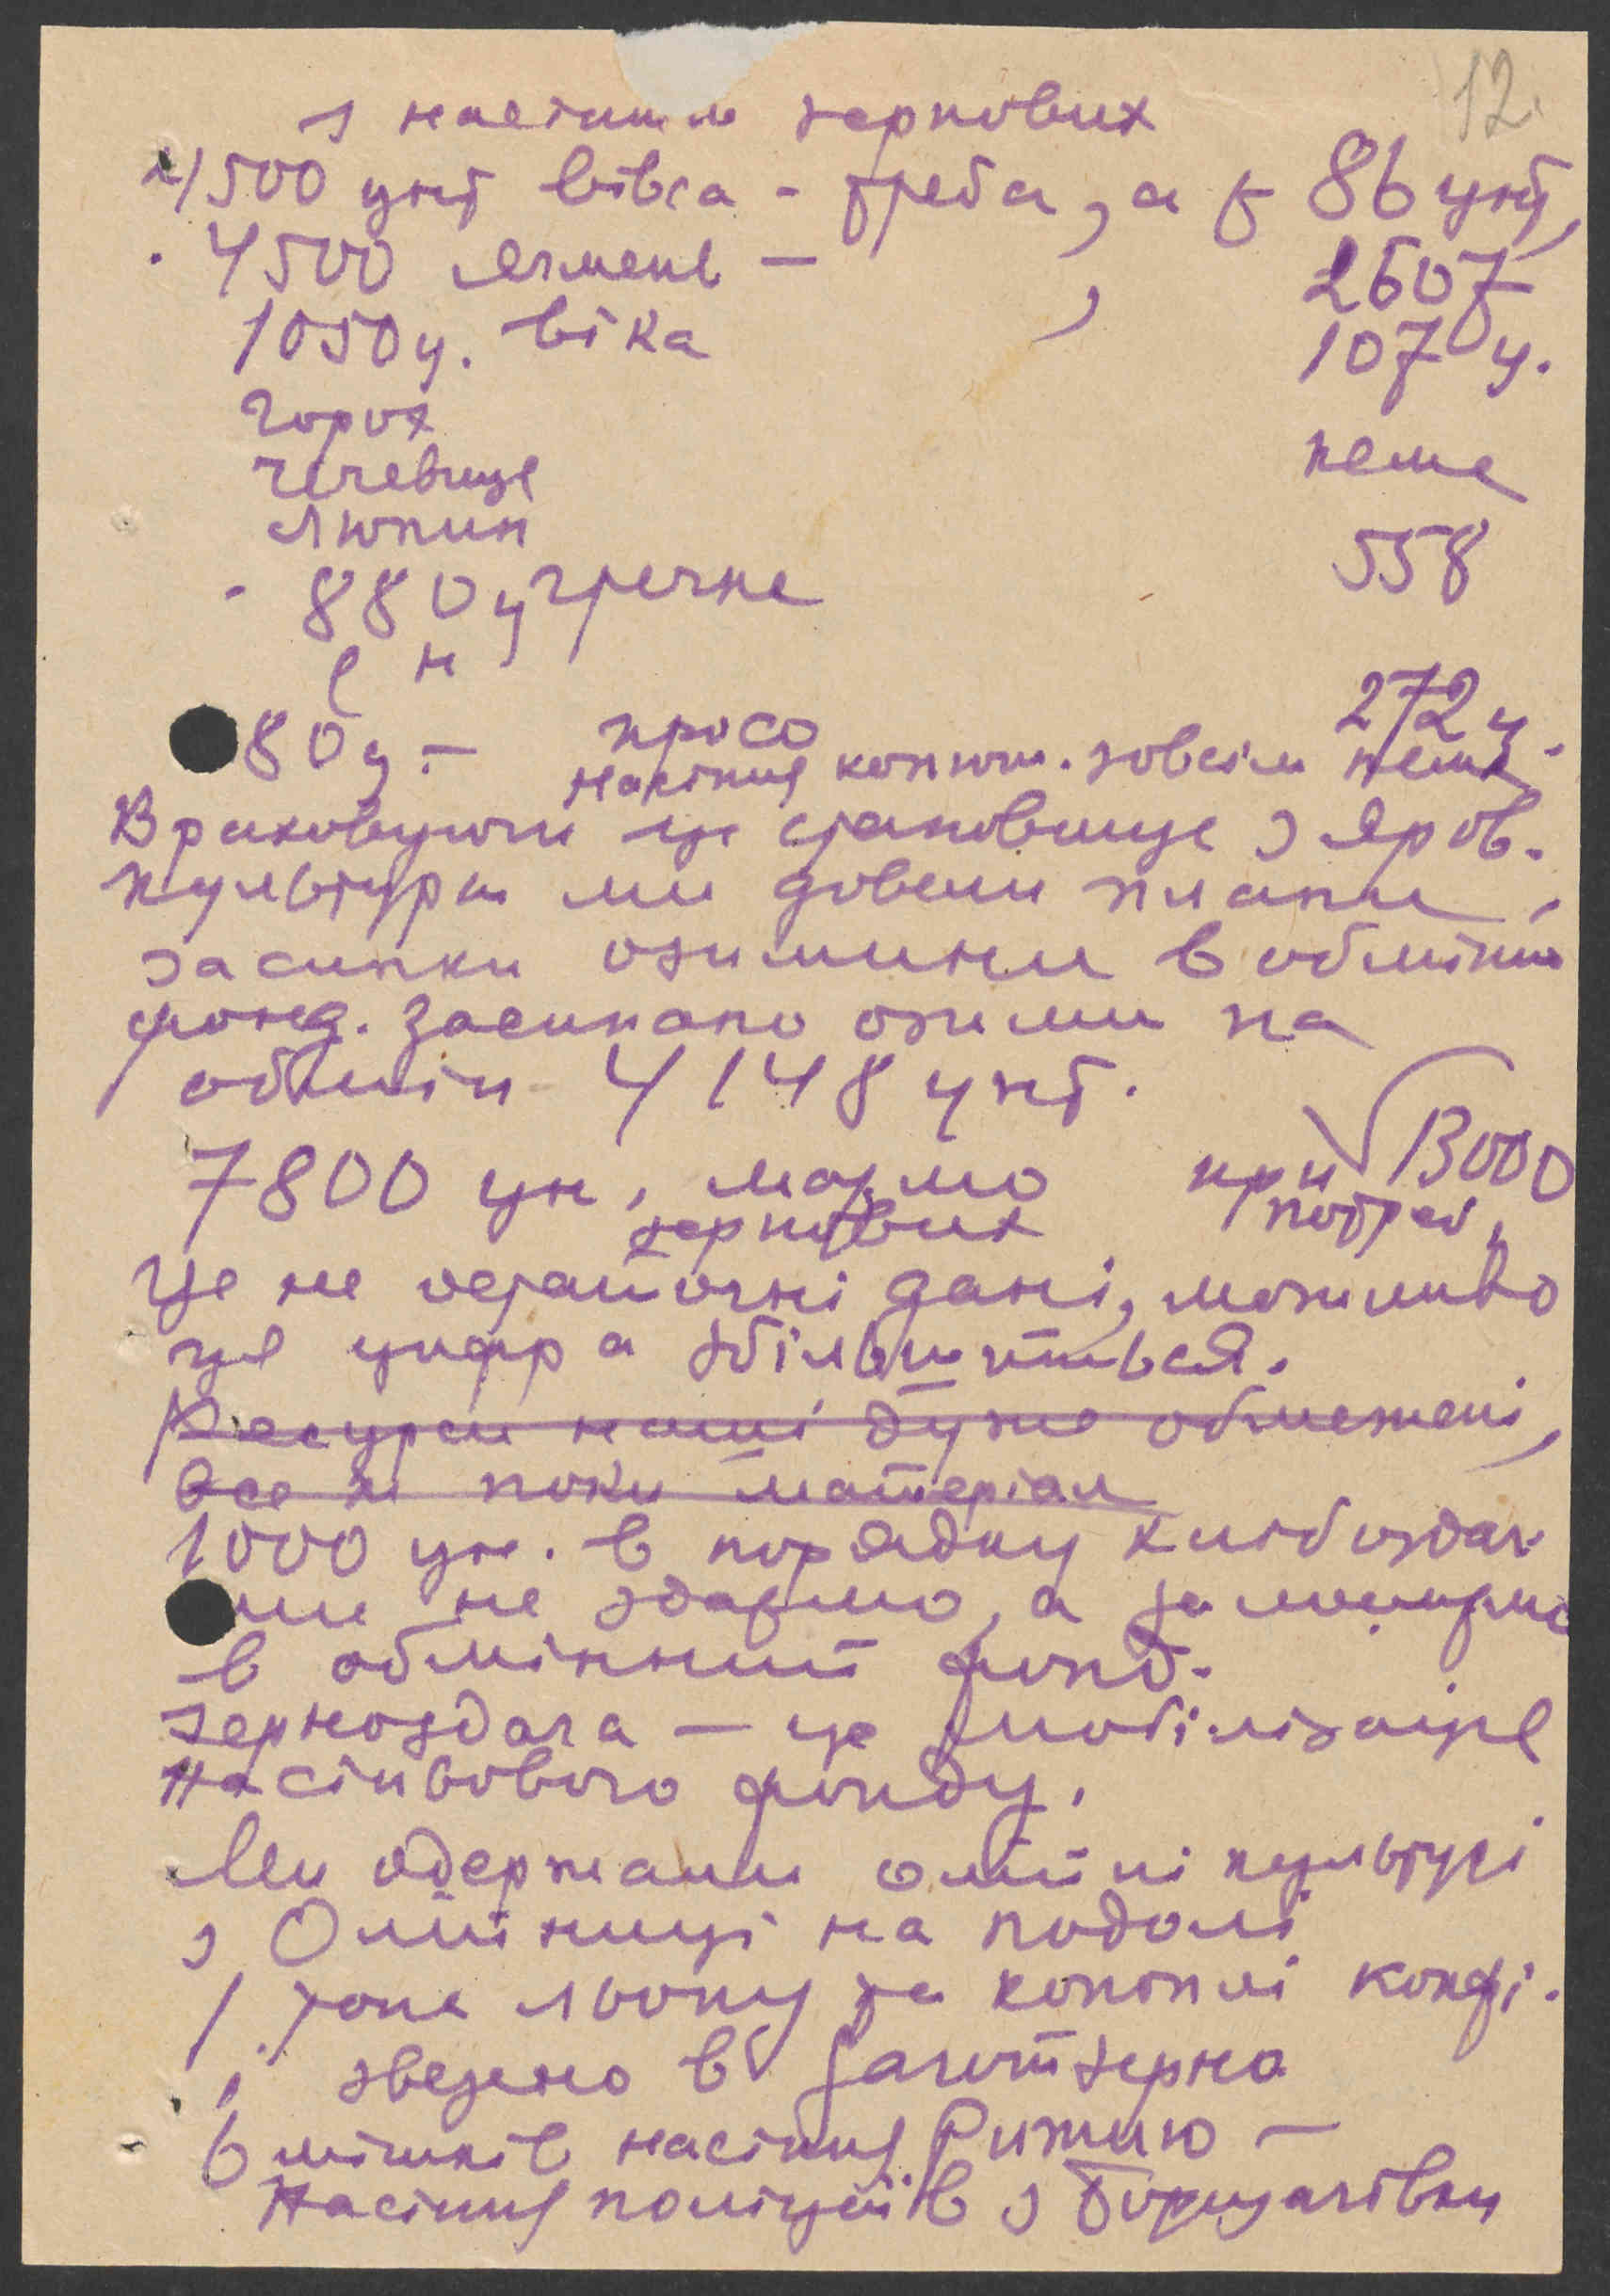 12.
з насінням зернових
4500 цнт вівса - треба, а є 86 цнт,
4500 ячмень — , 2607
1050 ц. віка 107 ц.
горох
чечевиця нема
люпин
880 ц гречне 558
80 ц. — просо 272 ц.
насіння конюш. зовсім нема
Враховуючи це становище з яров.
культурам ми довели плани
засипки озимини в обмінні
фонд. Засипано озими на
обмін 4148 цнт.
7800 цн. маємо при 13000
зернових потреб.
Це не остаточні дані, можливо
ця цифра збільшиться.
Ресурси наші дуже обмежені,
все х поки матеріал
1000 цн. в порядку хлібоздач
ми не здаємо, а залишаємо
в обмінний фонд.
Зерноздача — це мобілізація
насіньового фонду.
Ми одержали олійні культурі
з Олійниці на подолі
1 тона льону та коноплі конфі.
звезено в Заготзерно
6 мішків насіння Рижию —
Насіння поліцаїв з Борщагівки